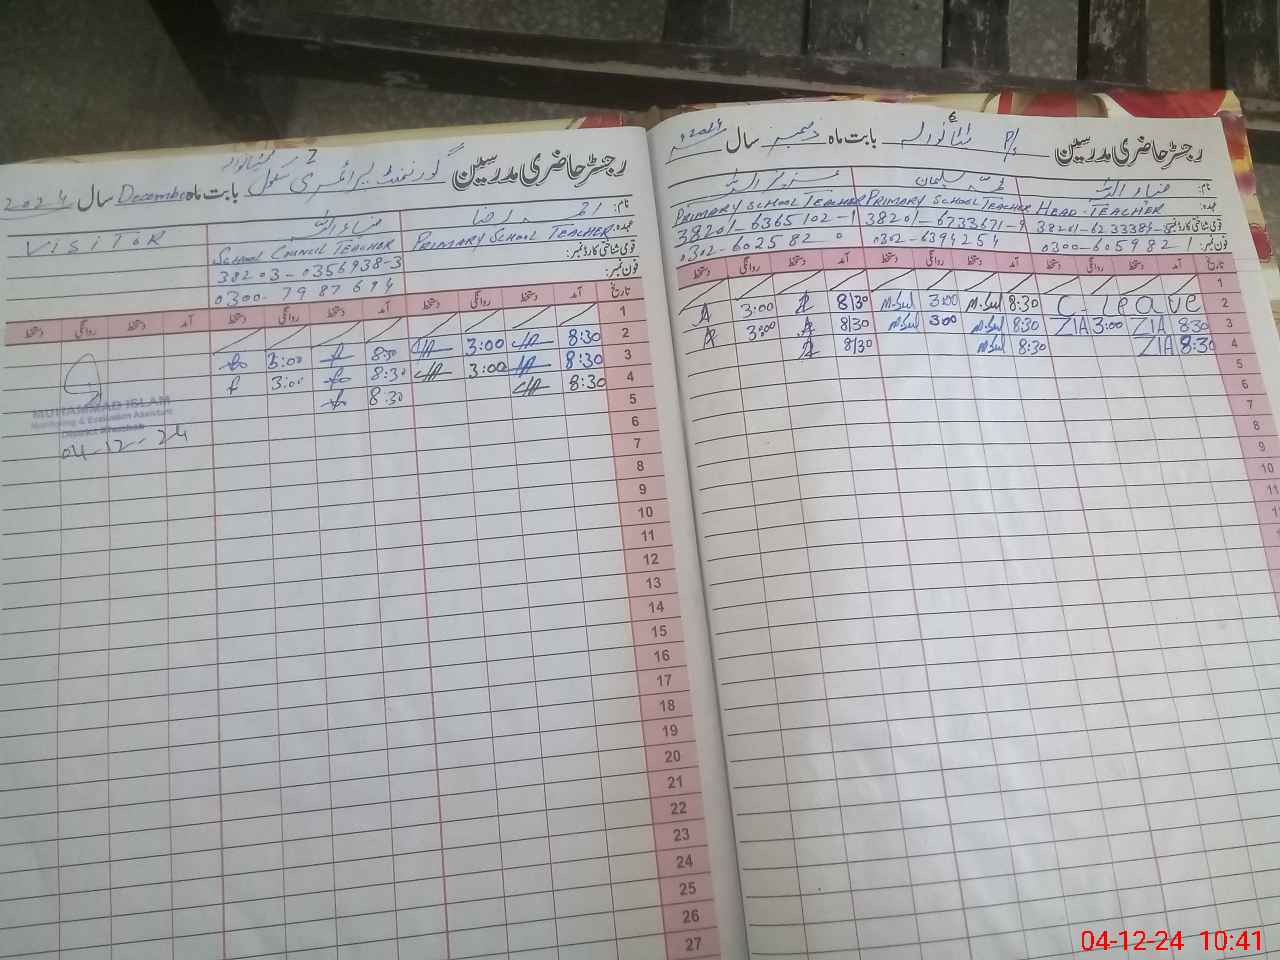 رجسٹر حاضری مدرسین گورنمنٹ پرائمری سکول بابت ماہ December سال 2024
نام: احمد رضا ضیاء اللہ VISITOR
عہدہ: PRIMARY SCHOOL TEACHER SCHOOL COUNCIL TEACHER
قومی شناختی کارڈ نمبر: 38203-0356938-3
فون نمبر: 0300-7987694
تاریخ آمد دستخط روانگی دستخط آمد دستخط روانگی دستخط آمد دستخط روانگی دستخط
1
2 8:30 3:00 8:30 3:00
3 8:30 3:00 8:30 3:00
4 8:30 8:30
5
MUHAMMAD ISLAM
Monitoring & Evaluation Assistant
District Khushab
04-12-24
6
7
8
9
10
11
12
13
14
15
16
17
18
19
20
21
22
23
24
25
26
27
رجسٹر حاضری مدرسین P/S بابت ماہ دسمبر سال 2024
نام: ضیاء اللہ محمد سلیمان عزیز اللہ
عہدہ: HEAD-TEACHER PRIMARY SCHOOL TEACHER PRIMARY SCHOOL TEACHER
قومی شناختی کارڈ نمبر: 38201-6233384-5 38201-6733671-9 38201-6365102-1
فون نمبر: 0300-6059821 0302-6394254 0302-6025820
تاریخ آمد دستخط روانگی دستخط آمد دستخط روانگی دستخط آمد دستخط روانگی دستخط
1
2 C. leave 8:30 M.Sul 3:00 M.Sul 8:30 3:00
3 8:30 ZIA 3:00 ZIA 8:30 M.Sul 3:00 M.Sul 8:30 3:00
4 8:30 ZIA 8:30 M.Sul 8:30
5
6
7
8
9
10
11
04-12-24 10:41